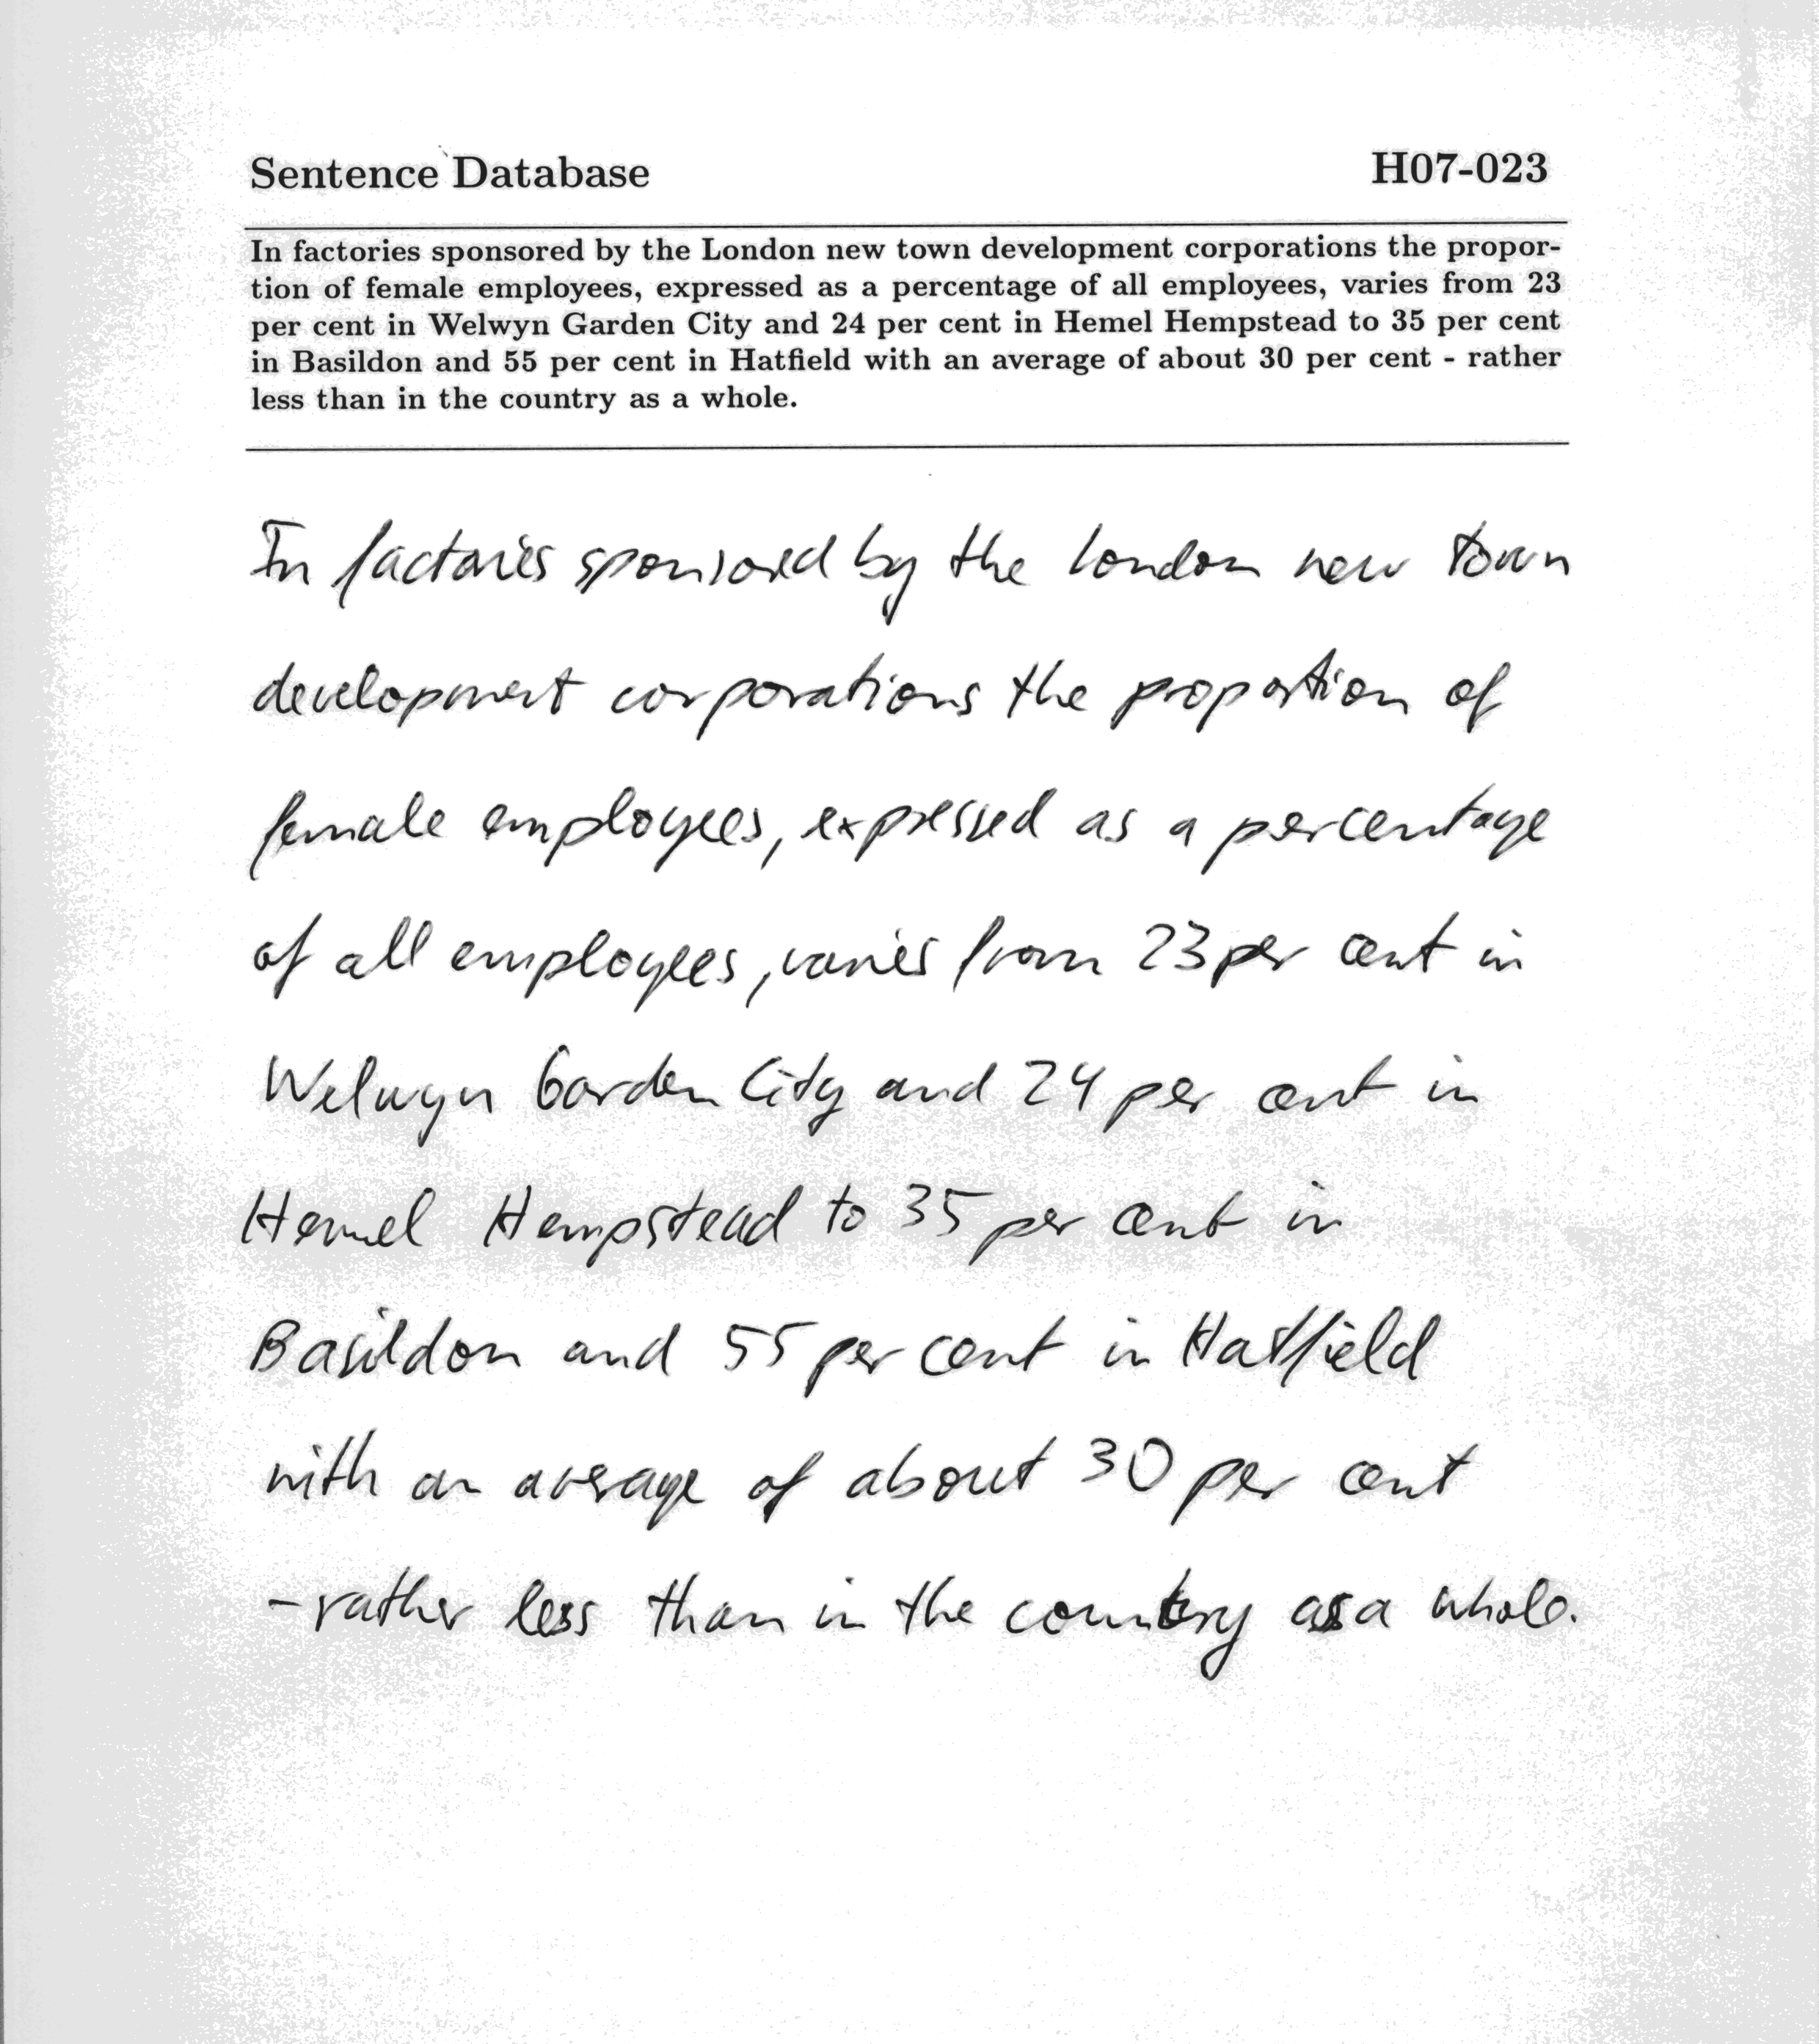 Sentence Database H07-023
In factories sponsored by the London new town development corporations the propor-
tion of female employees, expressed as a percentage of all employees, varies from 23
per cent in Welwyn Garden City and 24 per cent in Hemel Hempstead to 35 per cent
in Basildon and 55 per cent in Hatfield with an average of about 30 per cent - rather
less than in the country as a whole.
In factories sponsored by the London new town
development corporations the proportion of
female employees, expressed as a percentage
of all employees, varies from 23 per cent in
Welwyn Garden City and 24 per cent in
Hemel Hempstead to 35 per cent in
Basildon and 55 per cent in Hatfield
with an average of about 30 per cent
- rather less than in the country as a whole.